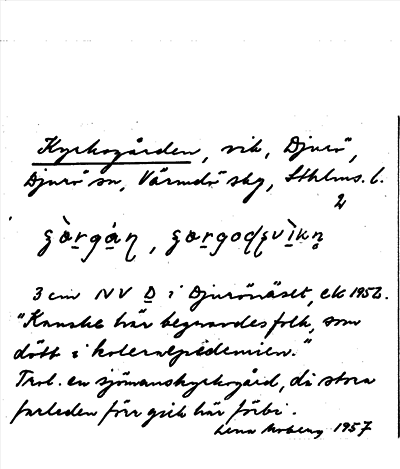 Kyrkogården, vik, Djurö,
Djurö sn, Värmdö skg, Sthlms. l.
2
3 cm NV D i Djurönäset, ek 1956.
"Kanske här begravdes folk, som
dött i koleraepidemien."
Trol. en sjömanskyrkogård, då stora
farleden förr gick här förbi.
Lena Moberg 1957